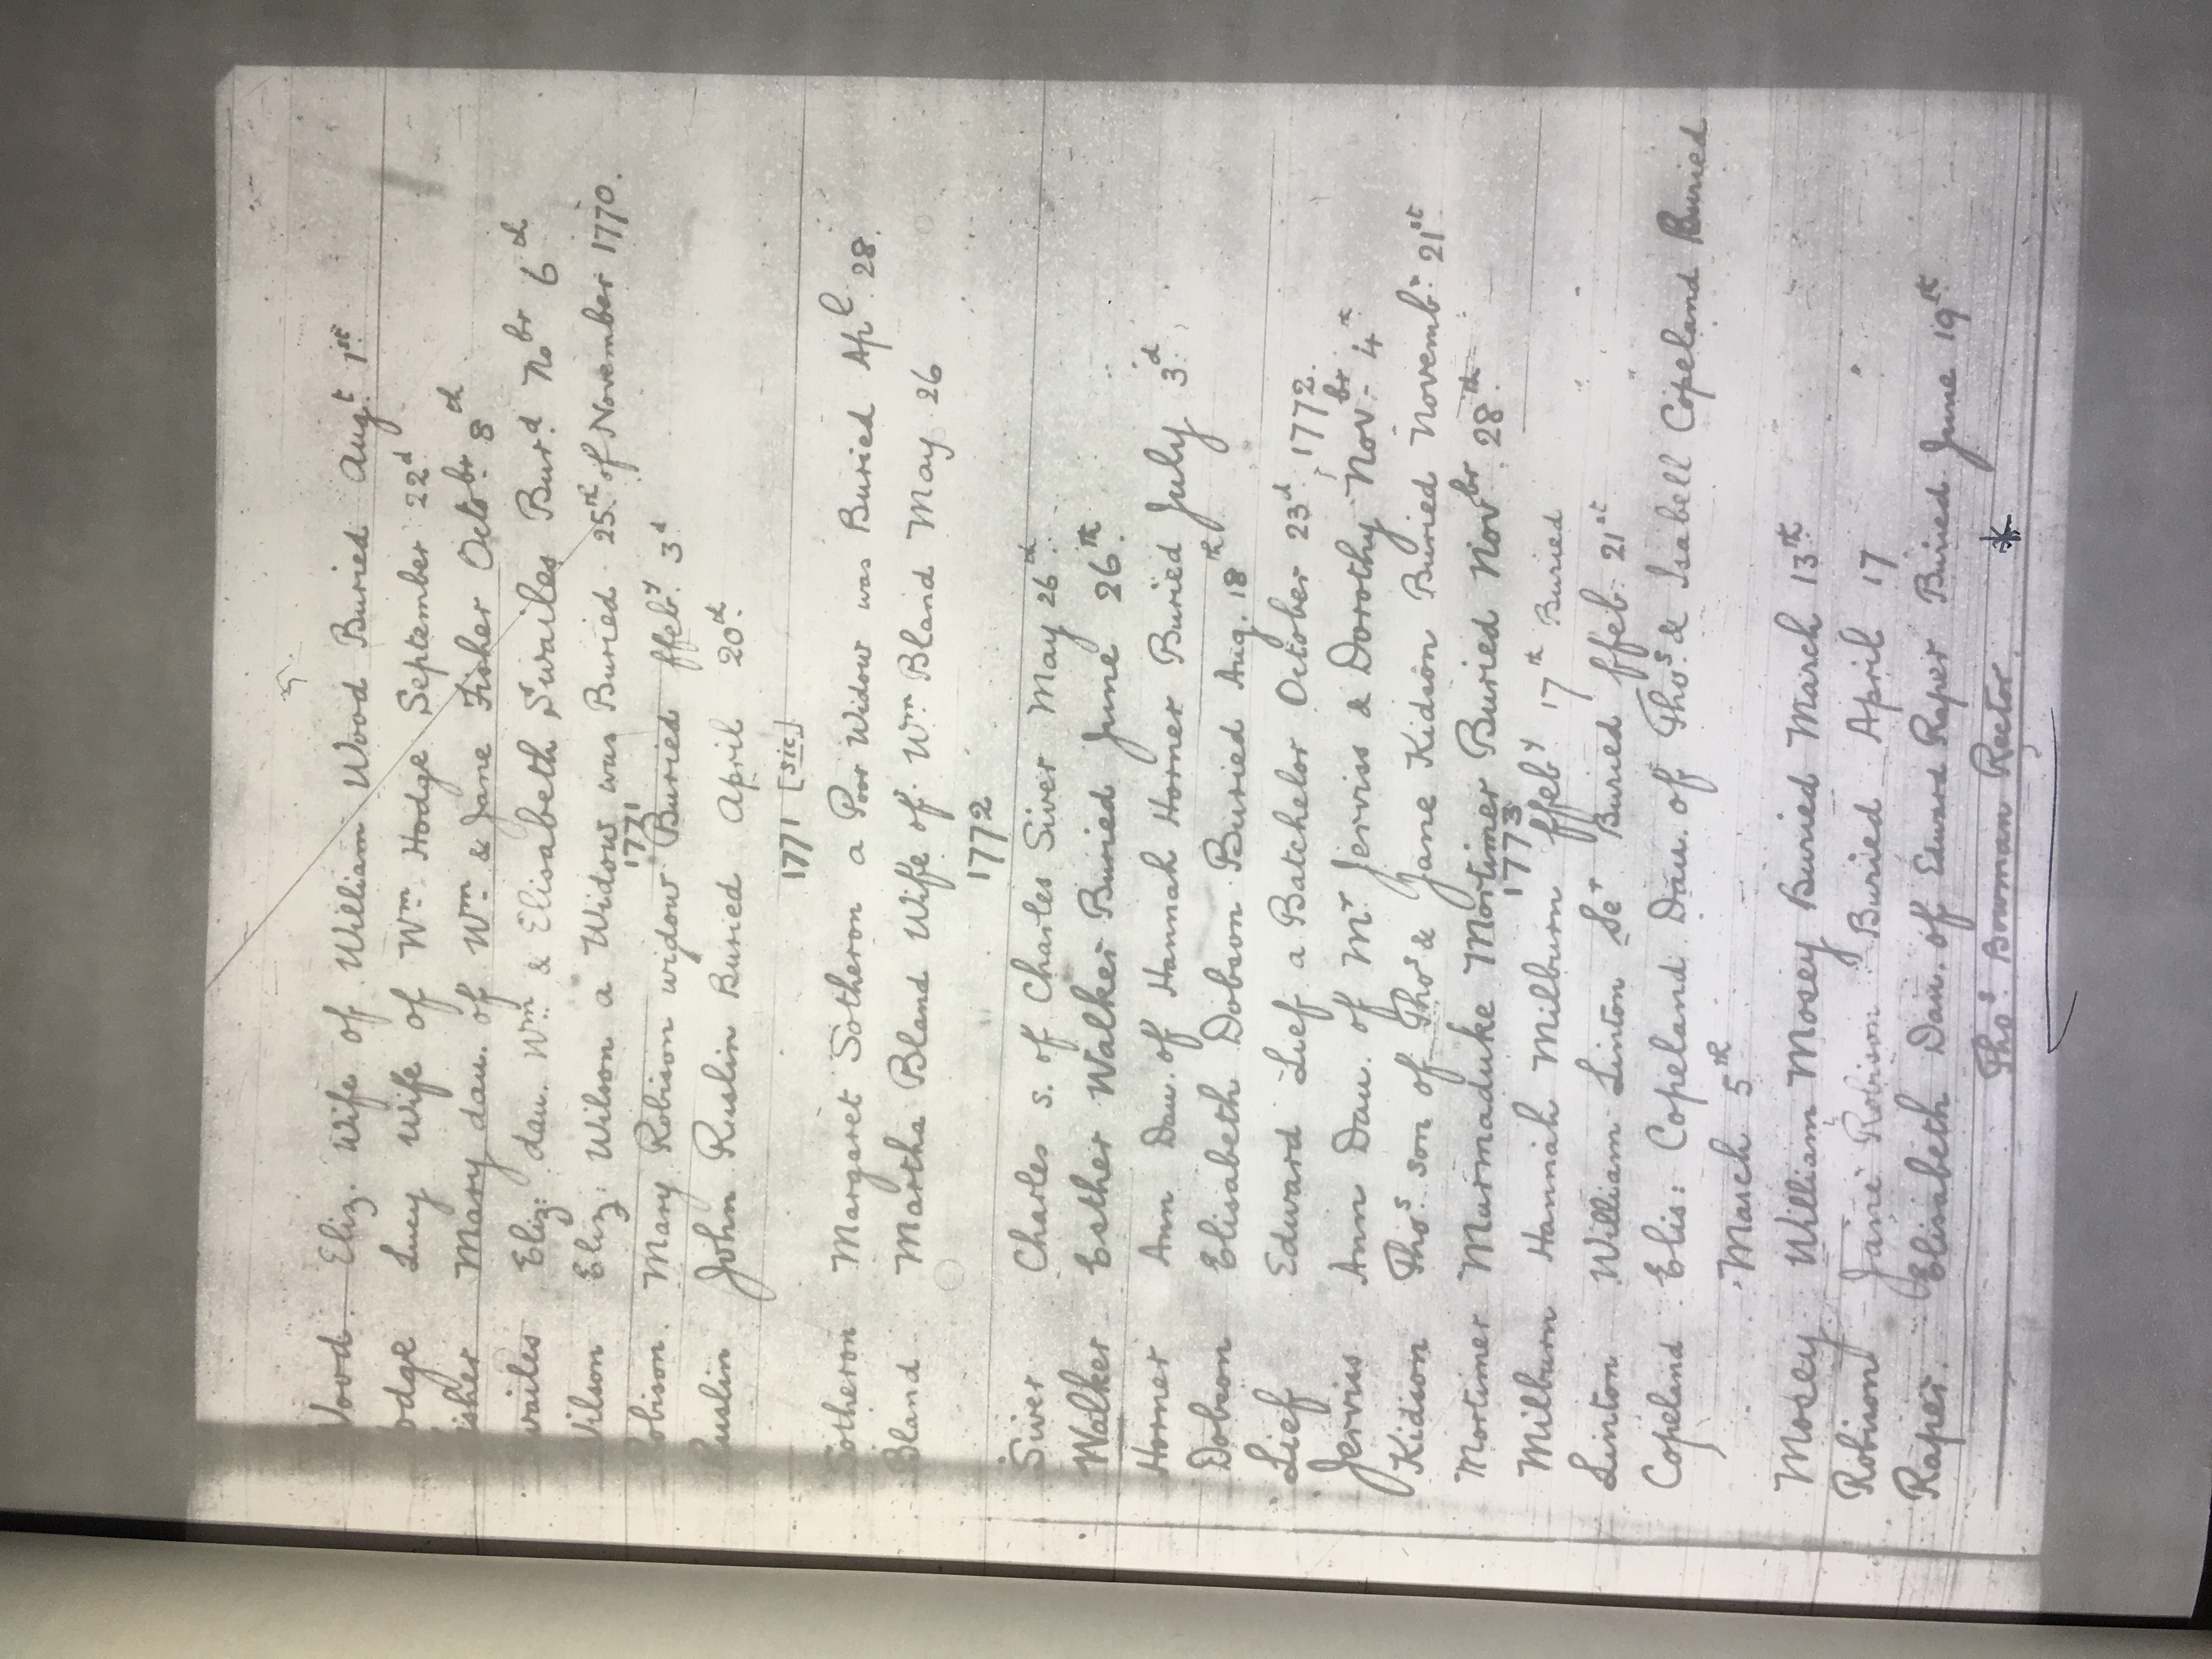 Wood Eliz. Wife of William Wood Buried Augt. 1st
odge Lucy Wife of Wm. Hodge September 22d
isher Mary dau. of Wm. & Jane Fisher Octobr. 8th
wailes Eliz: dau. Wm. & Elisabeth Swailes Burd. Nobr 6th
Wilson Eliz: Wilson a Widow was Buried 25th. of November 1770.
1771
obison Mary Robison widow Buried ffeby. 3d
Ruslin John Ruslin Buried April 20th.
1771 [sic]
Sotheron Margaret Sotheron a Poor Widow was Buried Apl. 28.
Bland Martha Bland Wife of Wm Bland May 26
1772
Siver Charles s. of Charles Siver May 26th.
Walker Esther Walker Buried June 26th.
Horner Ann Dau. of Hannah Horner Buried July 3d.
Dobson Elisabeth Dobson Buried Aug. 18th
Lief Edward Lief a Batchelor October 23d. 1772.
Jerviss Ann Dau. of Mr Jerviss & Dorothy Novbr. 4th
Kidson Thos. son of Thos & Jane Kidson Buried Novembr. 21st
Mortimer Marmaduke Mortimer Buried Novbr. 28th.
1773
Milburn Hannah Milburn ffeby 17th Buried
Linton William Linton Ser Buried ffeb. 21st
Copeland Elis: Copeland Dau. of Thos. & Isabell Copeland Buried
March 5th
Mosey William Mosey Buried March 13th.
Robinson Jane Robison Buried April 17
Raper. Elisabeth Dau. of Edward Raper Buried June 19th.
Thos. Bowman Rector. *